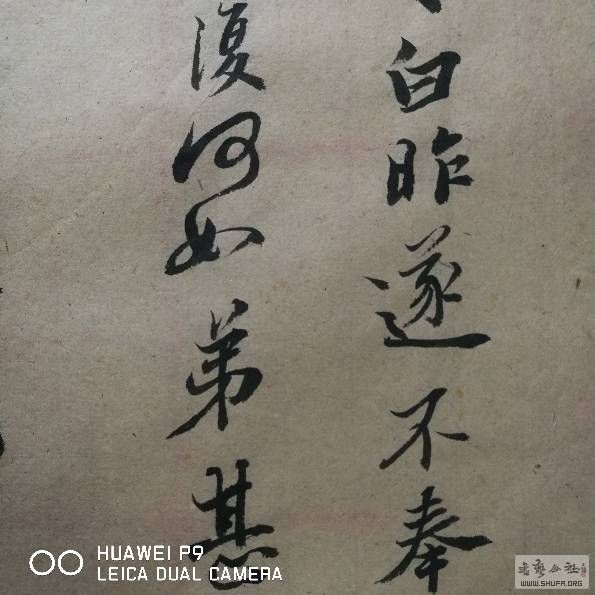 白昨遂不奉
復何如弟甚
HUAWEI P9
LEICA DUAL CAMERA
WWW.SHUFA.ORG